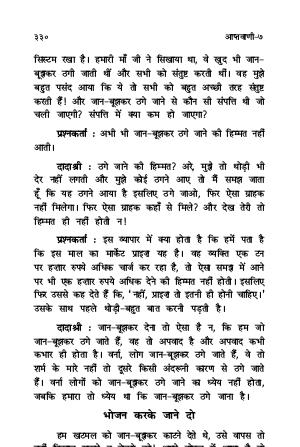 ३३० आप्तवाणी-७
सिस्टम रखा है। हमारी माँ जी ने सिखाया था, वे खुद भी जान-
बूझकर ठगी जाती थीं और सभी को संतुष्ट करती थीं। वह मुझे
बहुत पसंद आया कि ये तो सभी को बहुत अच्छी तरह संतुष्ट
करती हैं! और जान-बूझकर ठगे जाने से कौन सी संपत्ति थी जो
चली जाएगी? संपत्ति में क्या कम हो जाएगा?
प्रश्नकर्ता : अभी भी जान-बूझकर ठगे जाने की हिम्मत नहीं
आती।
दादाश्री : ठगे जाने की हिम्मत? अरे, मुझे तो थोड़ी भी
देर नहीं लगती और मुझे कोई ठगने आए तो मैं समझ जाता
हूँ कि यह ठगने आया है इसलिए ठगे जाओ, फिर ऐसा ग्राहक
नहीं मिलेगा। फिर ऐसा ग्राहक कहाँ से मिले? और देख तेरी तो
हिम्मत ही नहीं होती न!
प्रश्नकर्ता : इस व्यापार में क्या होता है कि हमें पता है
कि इस माल का मार्केट प्राइस यह है। वह व्यक्ति एक टन
पर हज़ार रुपये अधिक चार्ज कर रहा है, तो ऐसा समझ में आने
पर भी एक हज़ार रुपये अधिक देने की हिम्मत नहीं होती। इसलिए
फिर उससे कह देते हैं कि, 'नहीं, प्राइस तो इतनी ही होनी चाहिए।'
उसके साथ पहले थोड़ी-बहुत बात करनी पड़ती है।
दादाश्री : जान-बूझकर देना तो ऐसा है न, कि हम जो
जान-बूझकर ठगे जाते हैं, वह तो अपवाद है और अपवाद कभी
कभार ही होता है। वर्ना, लोग जान-बूझकर ठगे जाते हैं, वे तो
शर्म के मारे नहीं तो दूसरे किसी अंदरूनी कारण से ठगे जाते
हैं। वर्ना लोगों को जान-बूझकर ठगे जाने का ध्येय नहीं होता,
जबकि हमारा तो ध्येय था कि जान-बूझकर ठगे जाना है।
भोजन करके जाने दो
हम खटमल को जान-बूझकर काटने देते थे, उसे वापस तो